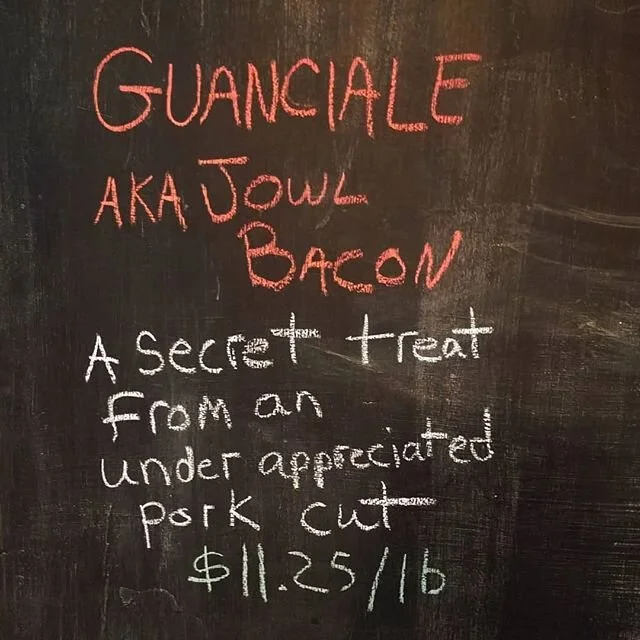 GUANCIALE
AKA JOWL
BACON
A secret treat
from an
under appreciated
pork cut
$11.25/lb